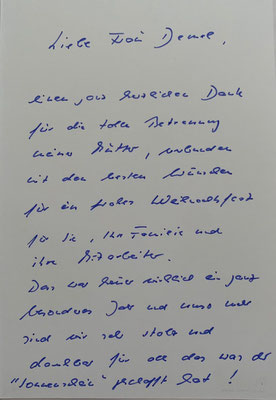 Liebe Frau Demel,
einen ganz herzlichen Dank
für die tolle Betreuung
meiner Mutter, verbunden
mit den besten Wünschen
für ein frohes Weihnachtsfest
für Sie, Ihre Familie und
ihre Mitarbeiter.
Das war heuer wirklich ein ganz
besonderes Jahr und umso mehr
sind wir sehr stolz und
dankbar für all das was der
"Sonnenschein" geschafft hat!